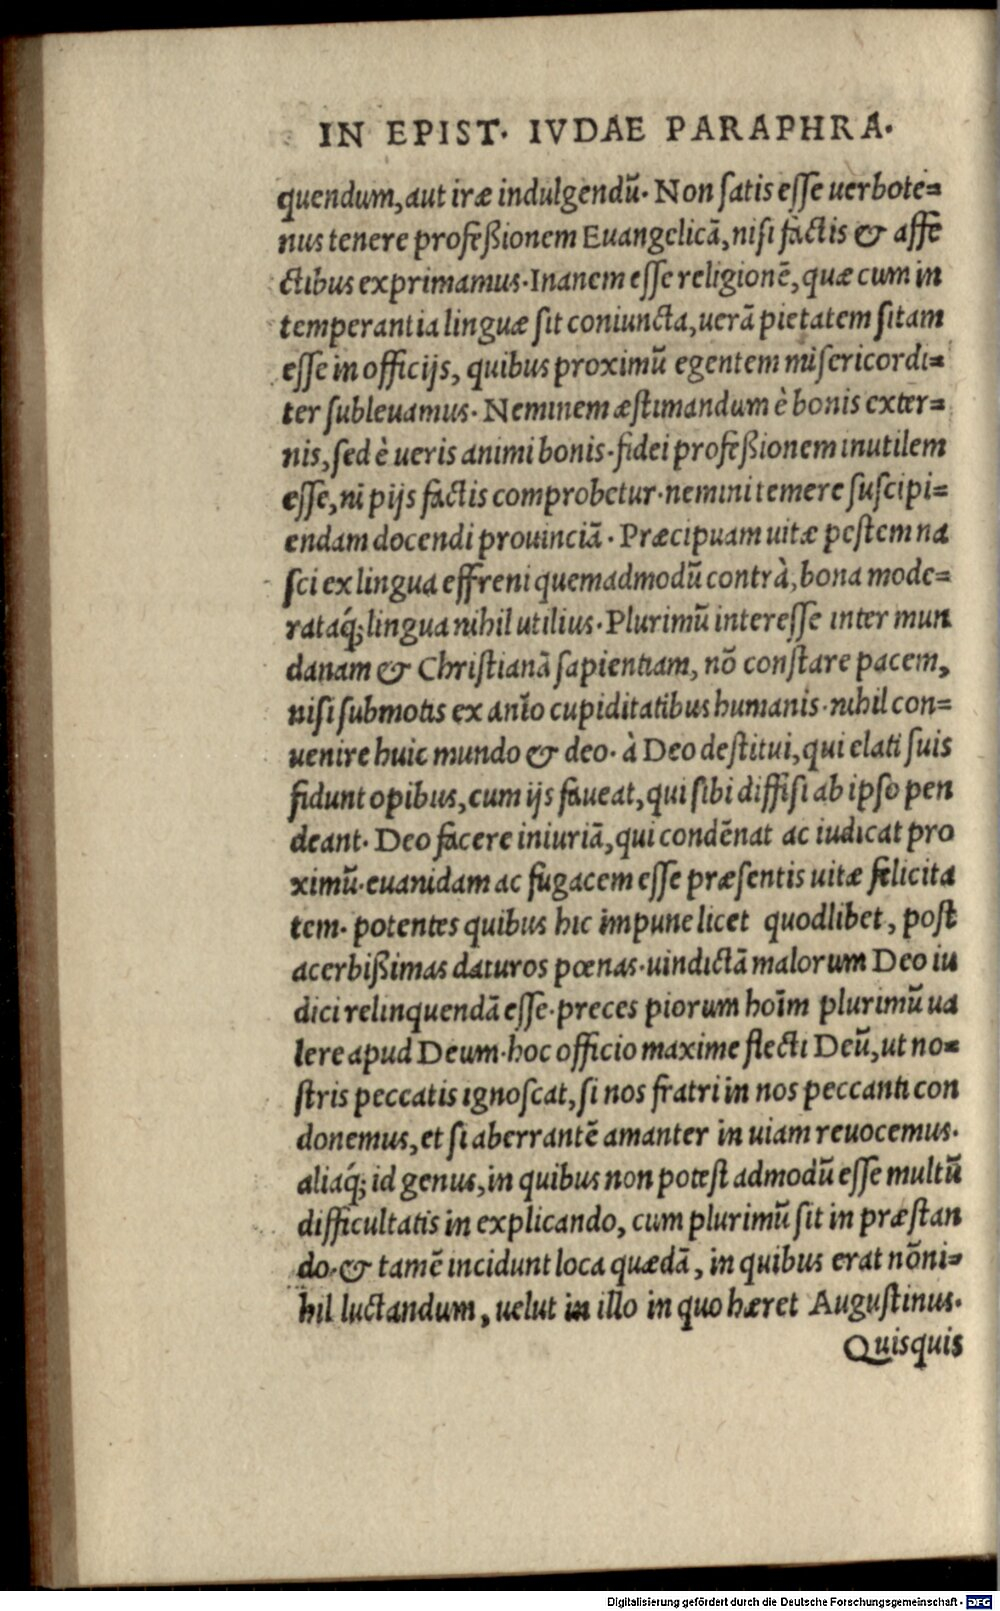 IN EPIST. IVDAE PARAPHRA.
quendum, aut iræ indulgendū. Non satis esse uerbote=
nus tenere profeßionem Euangelicā, nisi factis & affe
ctibus exprimamus. Inanem esse religionē, quæ cum in
temperantia linguæ sit coniuncta, uerā pietatem sitam
esse in officijs, quibus proximū egentem misericordi=
ter subleuamus. Neminem æstimandum è bonis exter=
nis, sed è ueris animi bonis. fidei profeßionem inutilem
esse, ni pijs factis comprobetur. nemini temere suscipi=
endam docendi prouinciā. Præcipuam uitæ pestem na
sci ex lingua effreni quemadmodū contrà, bona mode=
rataq́; lingua nihil utilius. Plurimū interesse inter mun
danam & Christianā sapientiam, nō constare pacem,
nisi submotis ex anĩo cupiditatibus humanis. nihil con=
uenire huic mundo & deo. à Deo destitui, qui elati suis
fidunt opibus, cum ijs faueat, qui sibi diffisi ab ipso pen
deant. Deo facere iniuriā, qui condēnat ac iudicat pro
ximū. euanidam ac fugacem esse præsentis uitæ felicita
tem. potentes quibus hic impune licet quodlibet, post
acerbißimas daturos pœnas. uindictā malorum Deo iu
dici relinquendā esse. preces piorum hoĩm plurimū ua
lere apud Deum. hoc officio maxime flecti Deū, ut no=
stris peccatis ignoscat, si nos fratri in nos peccanti con
donemus, et si aberrantē amanter in uiam reuocemus.
aliaq́; id genus, in quibus non potest admodū esse multū
difficultatis in explicando, cum plurimū sit in præstan
do. & tamē incidunt loca quædā, in quibus erat nōni=
hil luctandum, uelut in illo in quo hæret Augustinus.
Quisquis
Digitalisierung gefördert durch die Deutsche Forschungsgemeinschaft - DFG